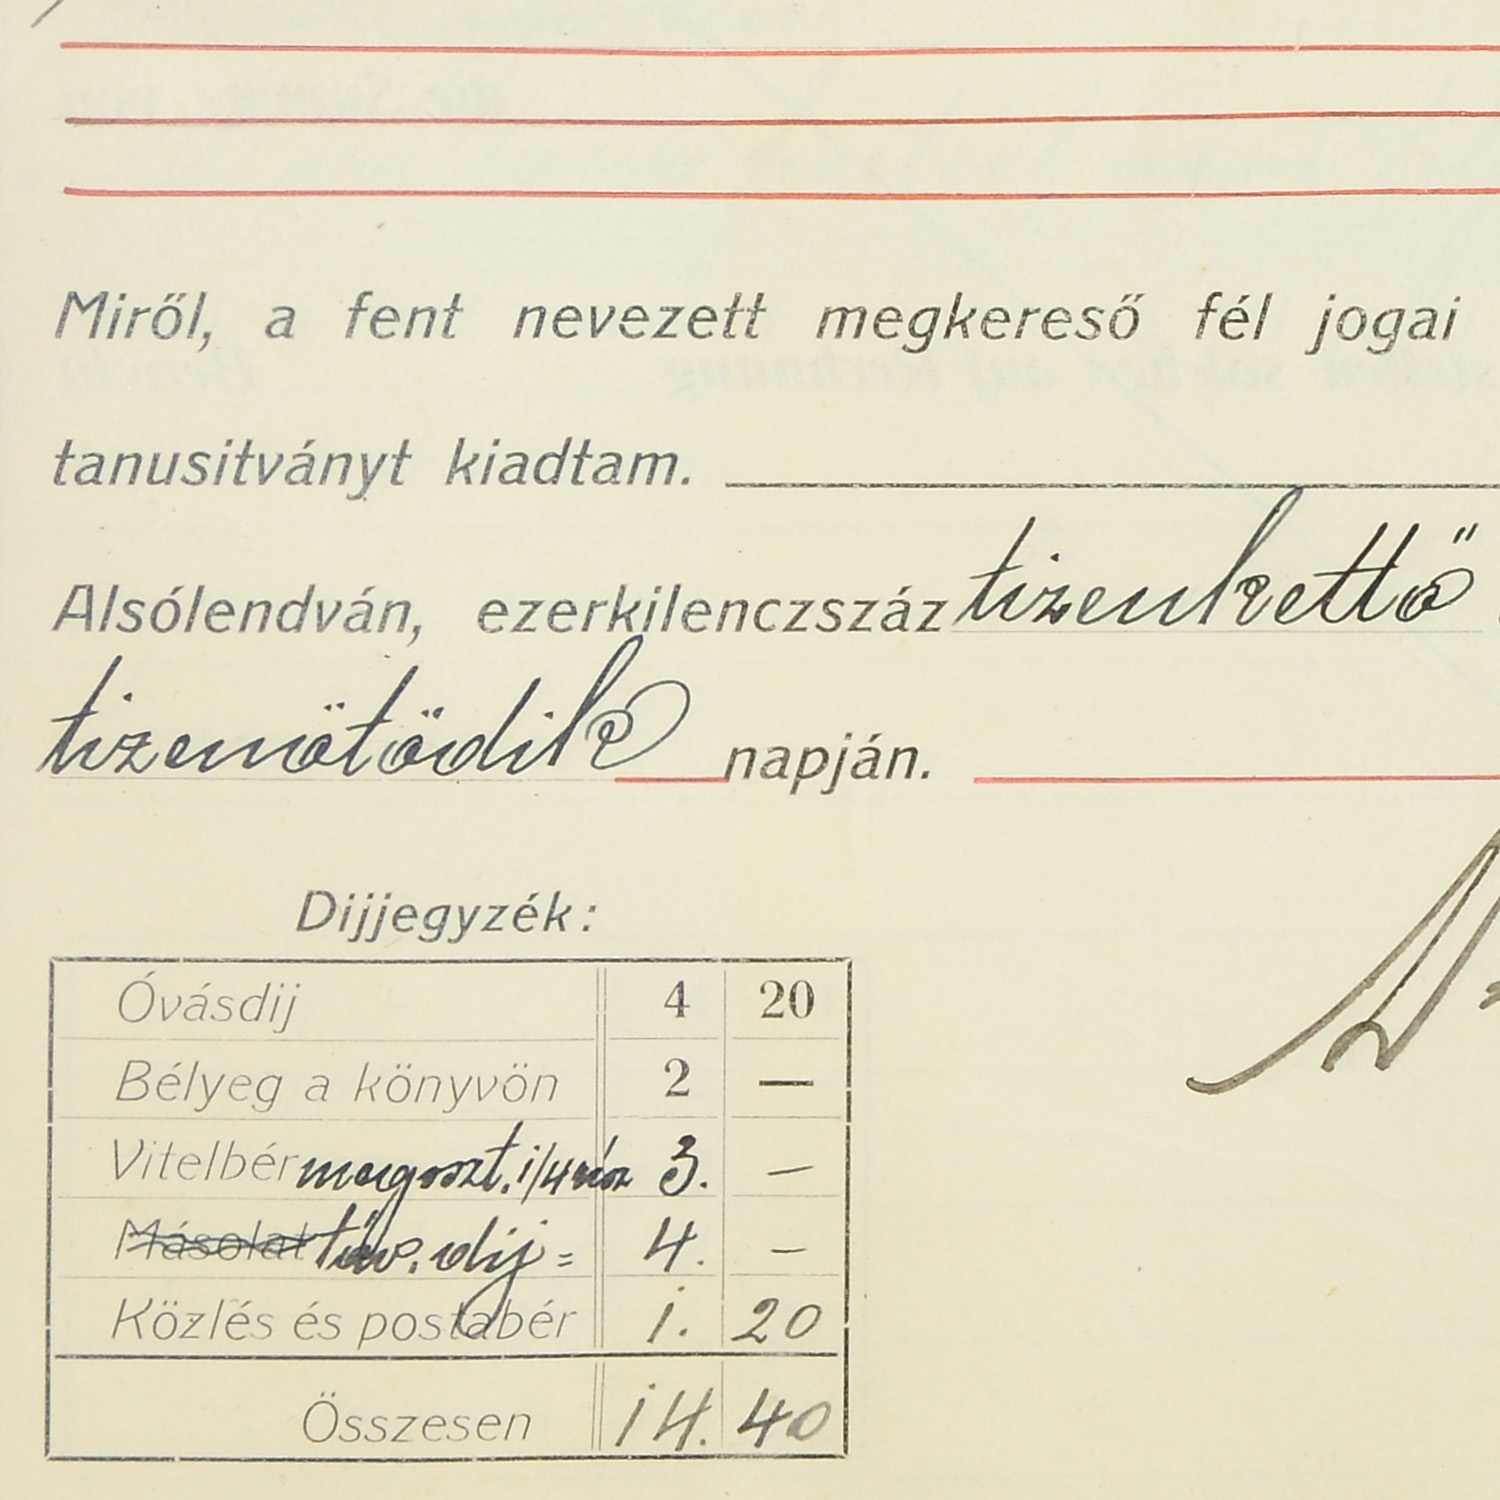 Miről, a fent nevezett megkereső fél jogai
tanusitványt kiadtam.
Alsólendván, ezerkilenczszáz tizenkettő
tizenötödik napján.
Dijjegyzék:
Óvásdij 4 20
Bélyeg a könyvön 2 —
Vitelbér megoszt. 1/4 rész 3. —
Másolat táv. dij = 4. —
Közlés és postabér 1. 20
Összesen 14. 40